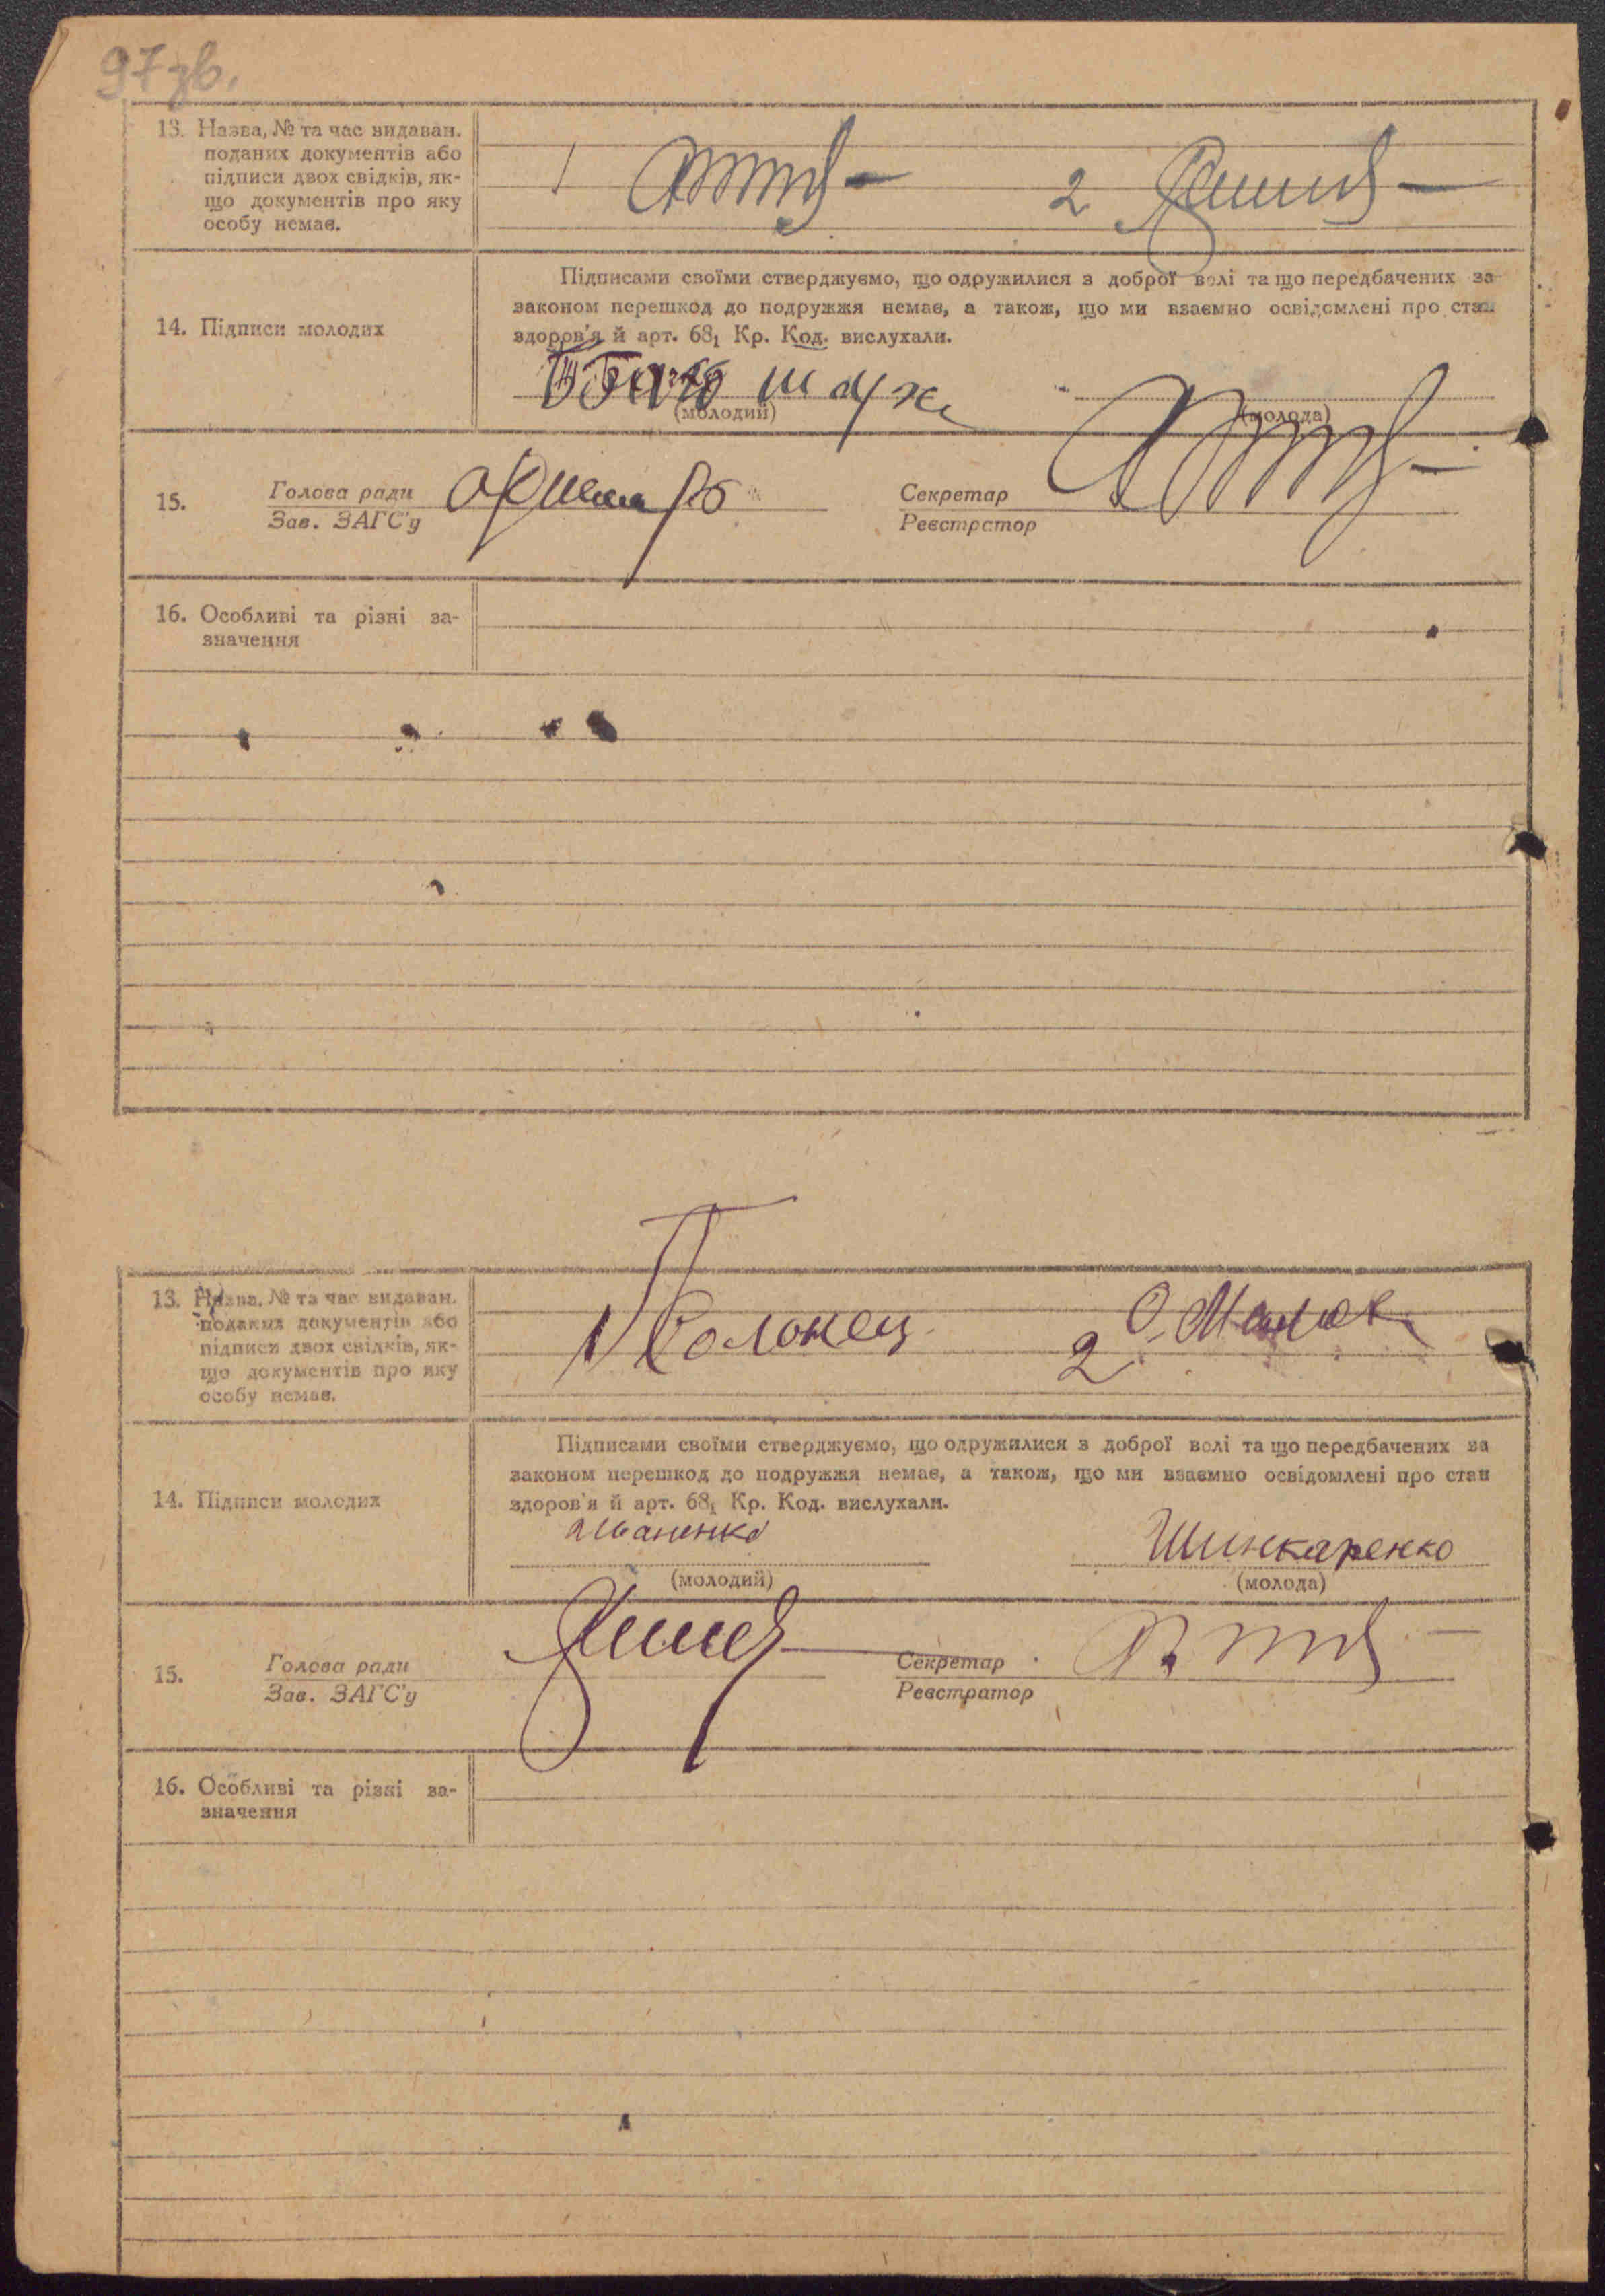 97 зв.
13. Назва, № та час видаван.
поданих документів або
підписи двох свідків, як-
що документів про яку
особу немає.
1
2
14. Підписи молодих
Підписами своїми стверджуємо, що одружилися з доброї волі та що передбачених за
законом перешкод до подружжя немає, а також, що ми взаємно освідомлені про стан
здоров'я й арт. 68₁ Кр. Код. вислухали.
(молодий)
(молода)
15.
Голова ради
Зав. ЗАГС'у
Секретар
Реєстратор
16. Особливі та різні за-
значення
13. Назва, № та час видаван.
поданих документів або
підписи двох свідків, як-
що документів про яку
особу немає.
1
Солонец
2
14. Підписи молодих
Підписами своїми стверджуємо, що одружилися з доброї волі та що передбачених за
законом перешкод до подружжя немає, а також, що ми взаємно освідомлені про стан
здоров'я й арт. 68₁ Кр. Код. вислухали.
Шинкаренко
(молодий)
(молода)
15.
Голова ради
Зав. ЗАГС'у
Секретар
Реєстратор
16. Особливі та різні за-
значення